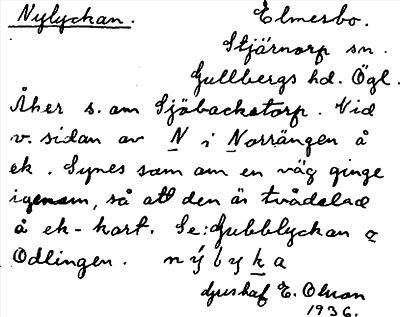 Nylyckan.
Elmersbo.
Stjärnorp sn.
Gullbergs hd. Ögl.
Åker s. om Sjöbackstorp. Vid
v. sidan av N i Norrängen å
ek. Synes som om en väg ginge
igenom, så att den är tvådelad
å ek-kart. Se: Gubblyckan o
Odlingen. nýbyka
Gustaf E. Olsson
1936.